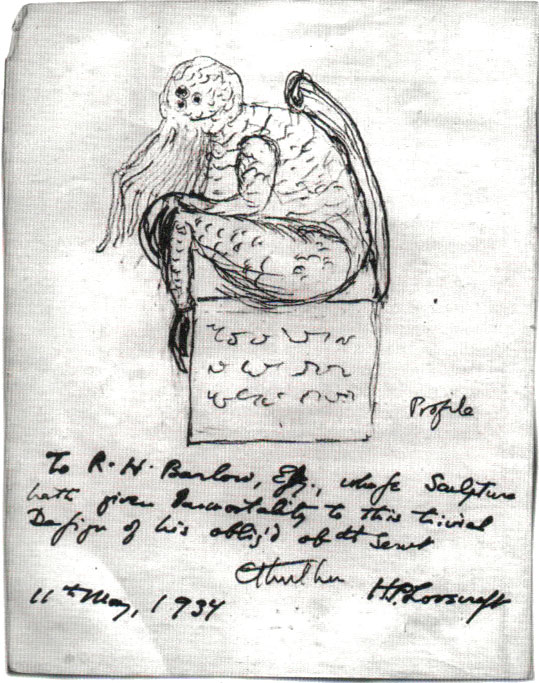 Profile
To R. H. Barlow, Esq., whose Sculpture
hath given Immortality to this trivial
Design of his oblig'd obdt Servt
Cthulhu H.P. Lovecraft
11th May, 1934